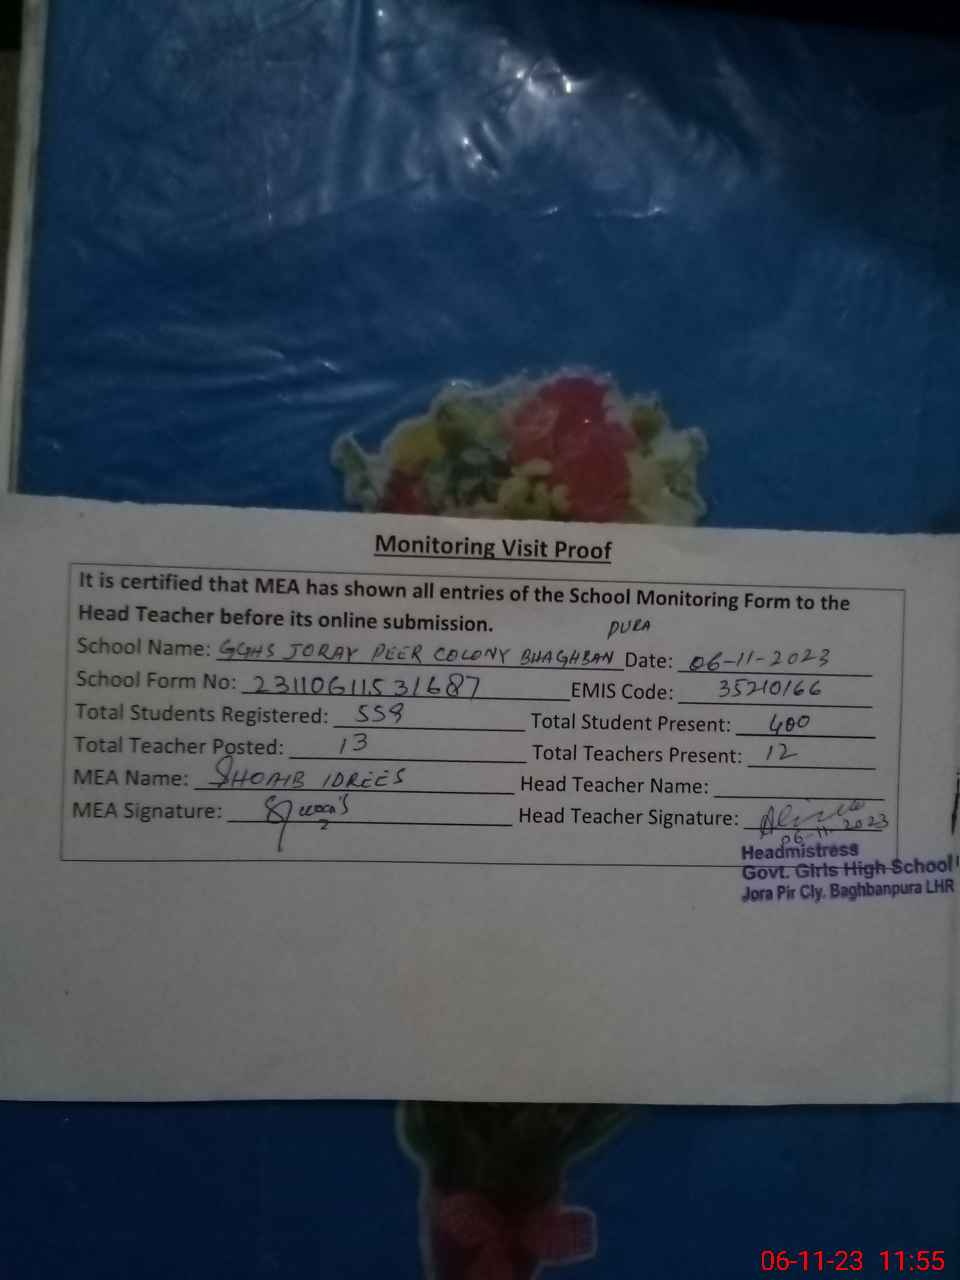 Monitoring Visit Proof
It is certified that MEA has shown all entries of the School Monitoring Form to the
Head Teacher before its online submission.
PURA
School Name: GGHS JORAY PEER COLONY BHAGHBAN Date: 06-11-2023
School Form No: 23110611531687 EMIS Code: 35210166
Total Students Registered: 559 Total Student Present: 400
Total Teacher Posted: 13 Total Teachers Present: 12
MEA Name: SHOAIB IDREES Head Teacher Name:
MEA Signature: Head Teacher Signature:
06-11-2023
Headmistress
Govt. Girls High School
Jora Pir Cly. Baghbanpura LHR
06-11-23 11:55